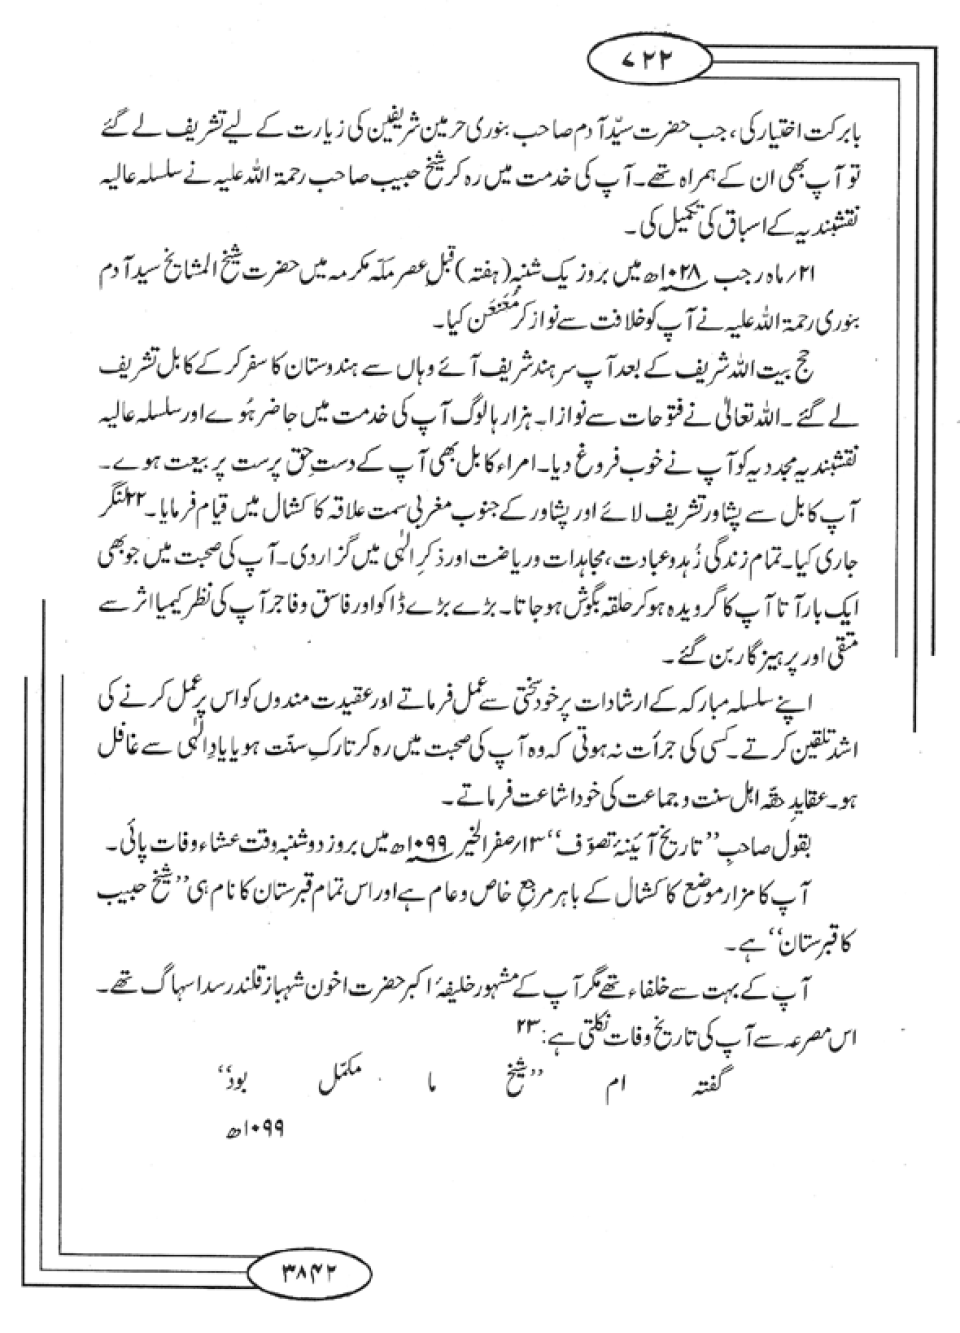 ۷۲۲
بابرکت اختیار کی، جب حضرت سیّد آدم صاحب بنوری حرمین شریفین کی زیارت کے لیے تشریف لے گئے
تو آپ بھی ان کے ہمراہ تھے۔ آپ کی خدمت میں رہ کر شیخ حبیب صاحب رحمۃ اللہ علیہ نے سلسلہ عالیہ
نقشبندیہ کے اسباق کی تکمیل کی۔
۲۱/ ماہ رجب ۱۰۲۸ھ میں بروز یک شنبہ (ہفتہ) قبلِ عصر مکّہ مکرمہ میں حضرت شیخ المشایخ سید آدم
بنوری رحمۃ اللہ علیہ نے آپ کو خلافت سے نواز کر مُعَنعَن کیا۔
حج بیت اللہ شریف کے بعد آپ سرہند شریف آئے وہاں سے ہندوستان کا سفر کر کے کابل تشریف
لے گئے۔ اللہ تعالیٰ نے فتوحات سے نوازا۔ ہزار ہا لوگ آپ کی خدمت میں حاضر ہُوے اور سلسلہ عالیہ
نقشبندیہ مجددیہ کو آپ نے خوب فروغ دیا۔ امراء کابل بھی آپ کے دستِ حق پرست پر بیعت ہوے۔
آپ کابل سے پشاور تشریف لائے اور پشاور کے جنوب مغربی سمت علاقہ کاکشال میں قیام فرمایا۔۲۲ لنگر
جاری کیا۔ تمام زندگی زُہد و عبادت، مجاہدات و ریاضت اور ذکرِ الٰہی میں گزار دی۔ آپ کی صحبت میں جو بھی
ایک بار آتا آپ کا گرویدہ ہو کر حلقہ بگوش ہو جاتا۔ بڑے بڑے ڈاکو اور فاسق و فاجر آپ کی نظر کیمیا اثر سے
متقی اور پرہیزگار بن گئے۔
اپنے سلسلہ مبارکہ کے ارشادات پر خود سختی سے عمل فرماتے اور عقیدت مندوں کو اس پر عمل کرنے کی
اشد تلقین کرتے۔ کسی کی جرأت نہ ہوتی کہ وہ آپ کی صحبت میں رہ کر تارکِ سنّت ہو یا یادِ الٰہی سے غافل
ہو۔ عقایدِ حقّہ اہل سنت و جماعت کی خود اشاعت فرماتے۔
بقول صاحبِ ”تاریخ آئینۂ تصوّف“ ۱۳/ صفر الخیر ۱۰۹۹ھ میں بروز دو شنبہ وقت عشاء وفات پائی۔
آپ کا مزار موضع کاکشال کے باہر مرجعِ خاص و عام ہے اور اس تمام قبرستان کا نام ہی ”شیخ حبیب
کا قبرستان“ ہے۔
آپ کے بہت سے خلفاء تھے مگر آپ کے مشہور خلیفۂ اکبر حضرت اخون شہباز قلندر سدا سہاگ تھے۔
اس مصرعہ سے آپ کی تاریخ وفات نکلتی ہے:۲۳
گفتہ ام ”شیخ ما مکمّل بود“
۱۰۹۹ھ
۳۸۴۲